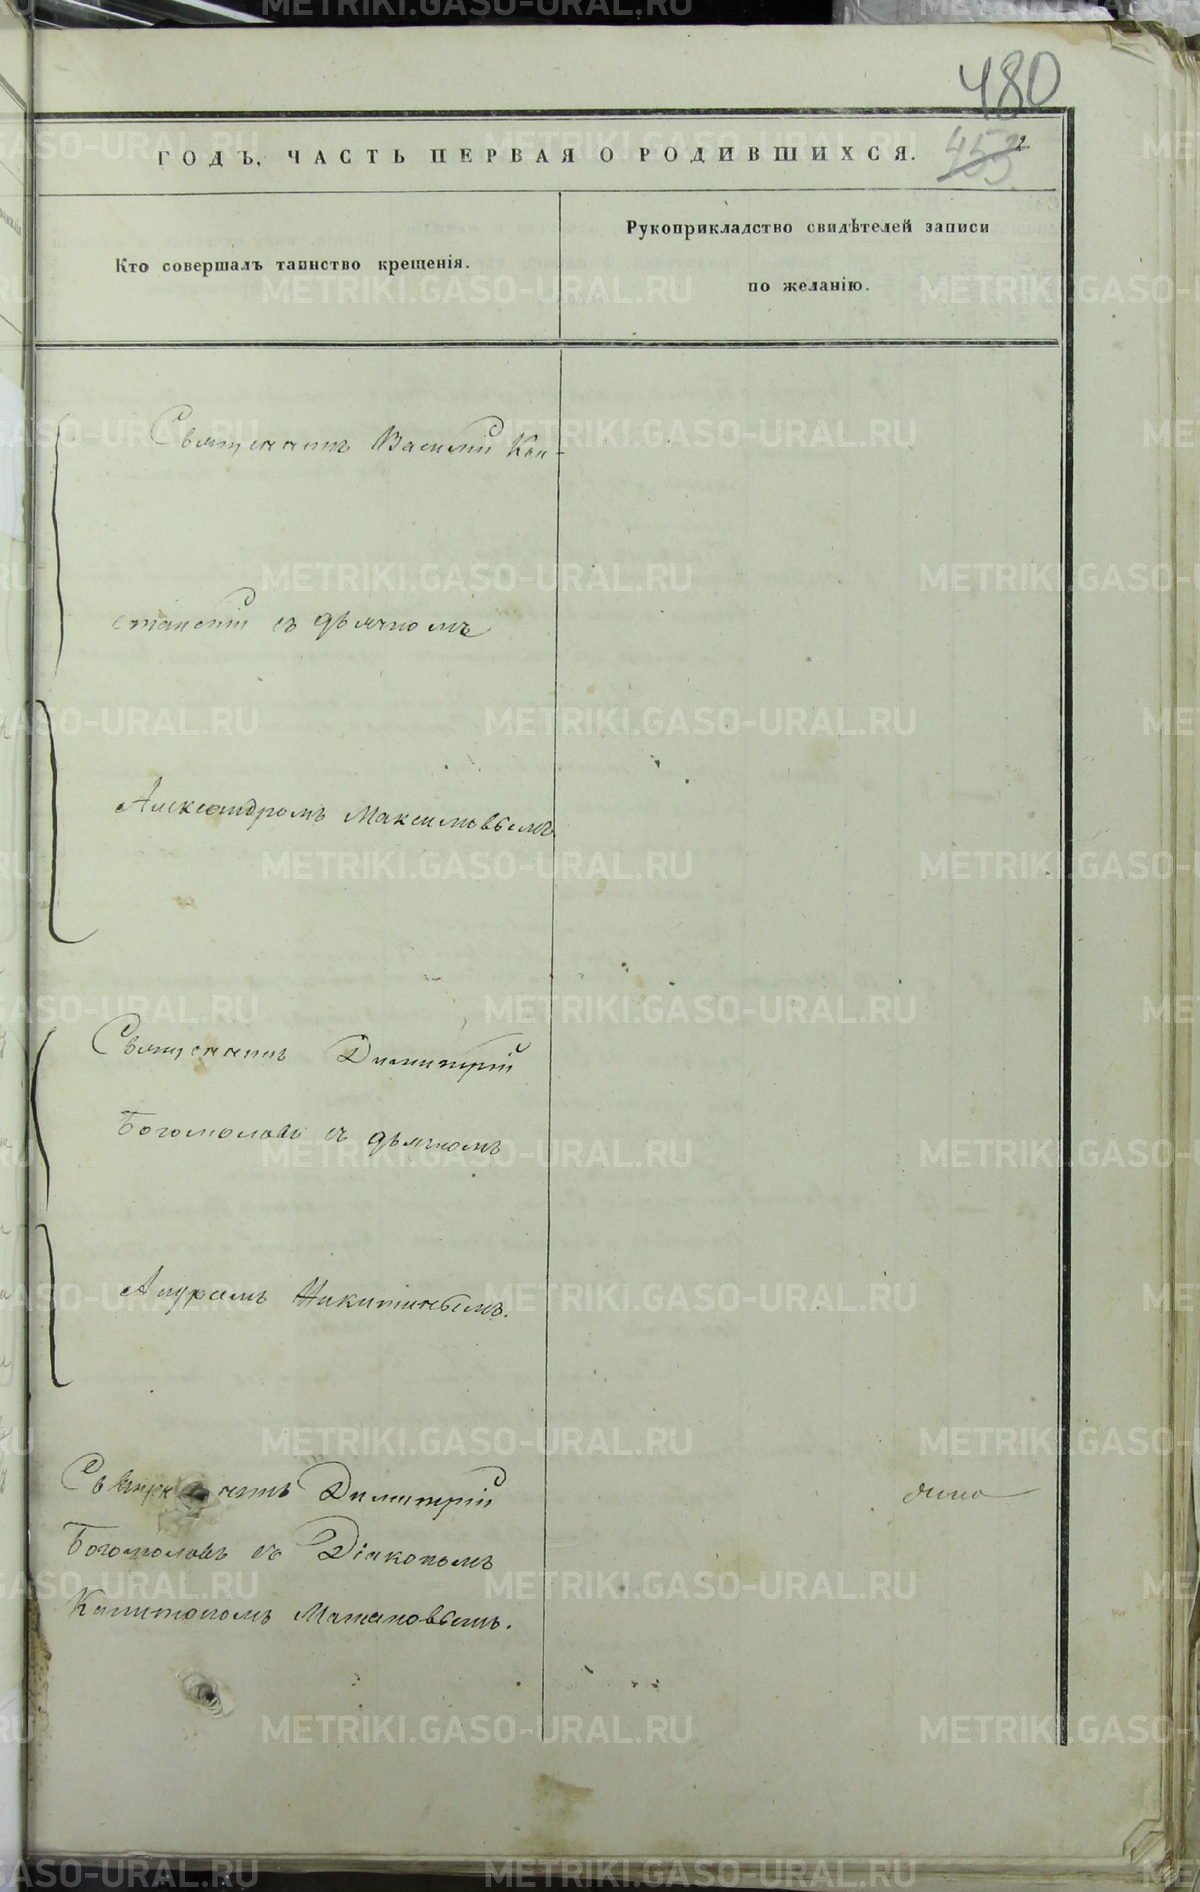 480
ГОДЪ, ЧАСТЬ ПЕРВАЯ О РОДИВШИХСЯ.
Кто совершалъ таинство крещенія.
Рукоприкладство свидѣтелей записи
по желанію.
Священникъ Василій Кон-
стансній съ дьячкомъ
Александромъ Максимовымъ
Священникъ Димитрій
Богомоловъ съ дьячкомъ
Никитинымъ.
Священникъ Димитрій
Богомоловъ съ Діакономъ
Капитономъ
METRIKI.GASO-URAL.RU